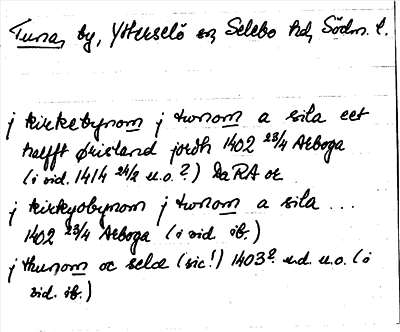 Tuna, by, Ytterselö sn, Selebo hd, Södm. l.
j kirkebynom j twnom a sila eet
halfft øristand jordh 1402 23/4 Arboga
(i vid. 1414 24/2 u.o.?) DaRA or
j kirkyobynom j twnom a sila ...
1402 23/4 Arboga (i vid. ib.)
j thunom oc selä (sic!) 1403? u.d. u.o. (i
vid. ib.)